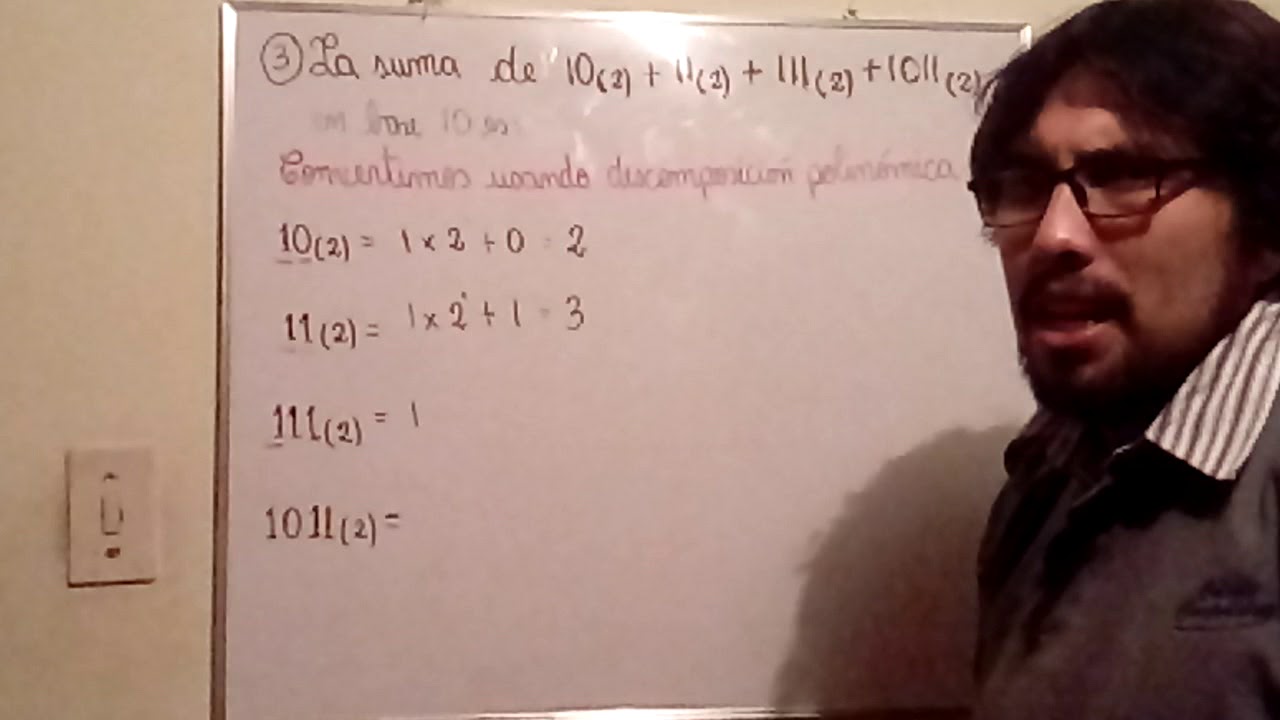 ③ La suma de 10(2) + 11(2) + 111(2) + 1011(2)
en base 10 es:
Convertimos usando descomposición polinómica
10(2) = 1 x 2 + 0 = 2
11(2) = 1 x 2 + 1 = 3
111(2) = 1
1011(2) =